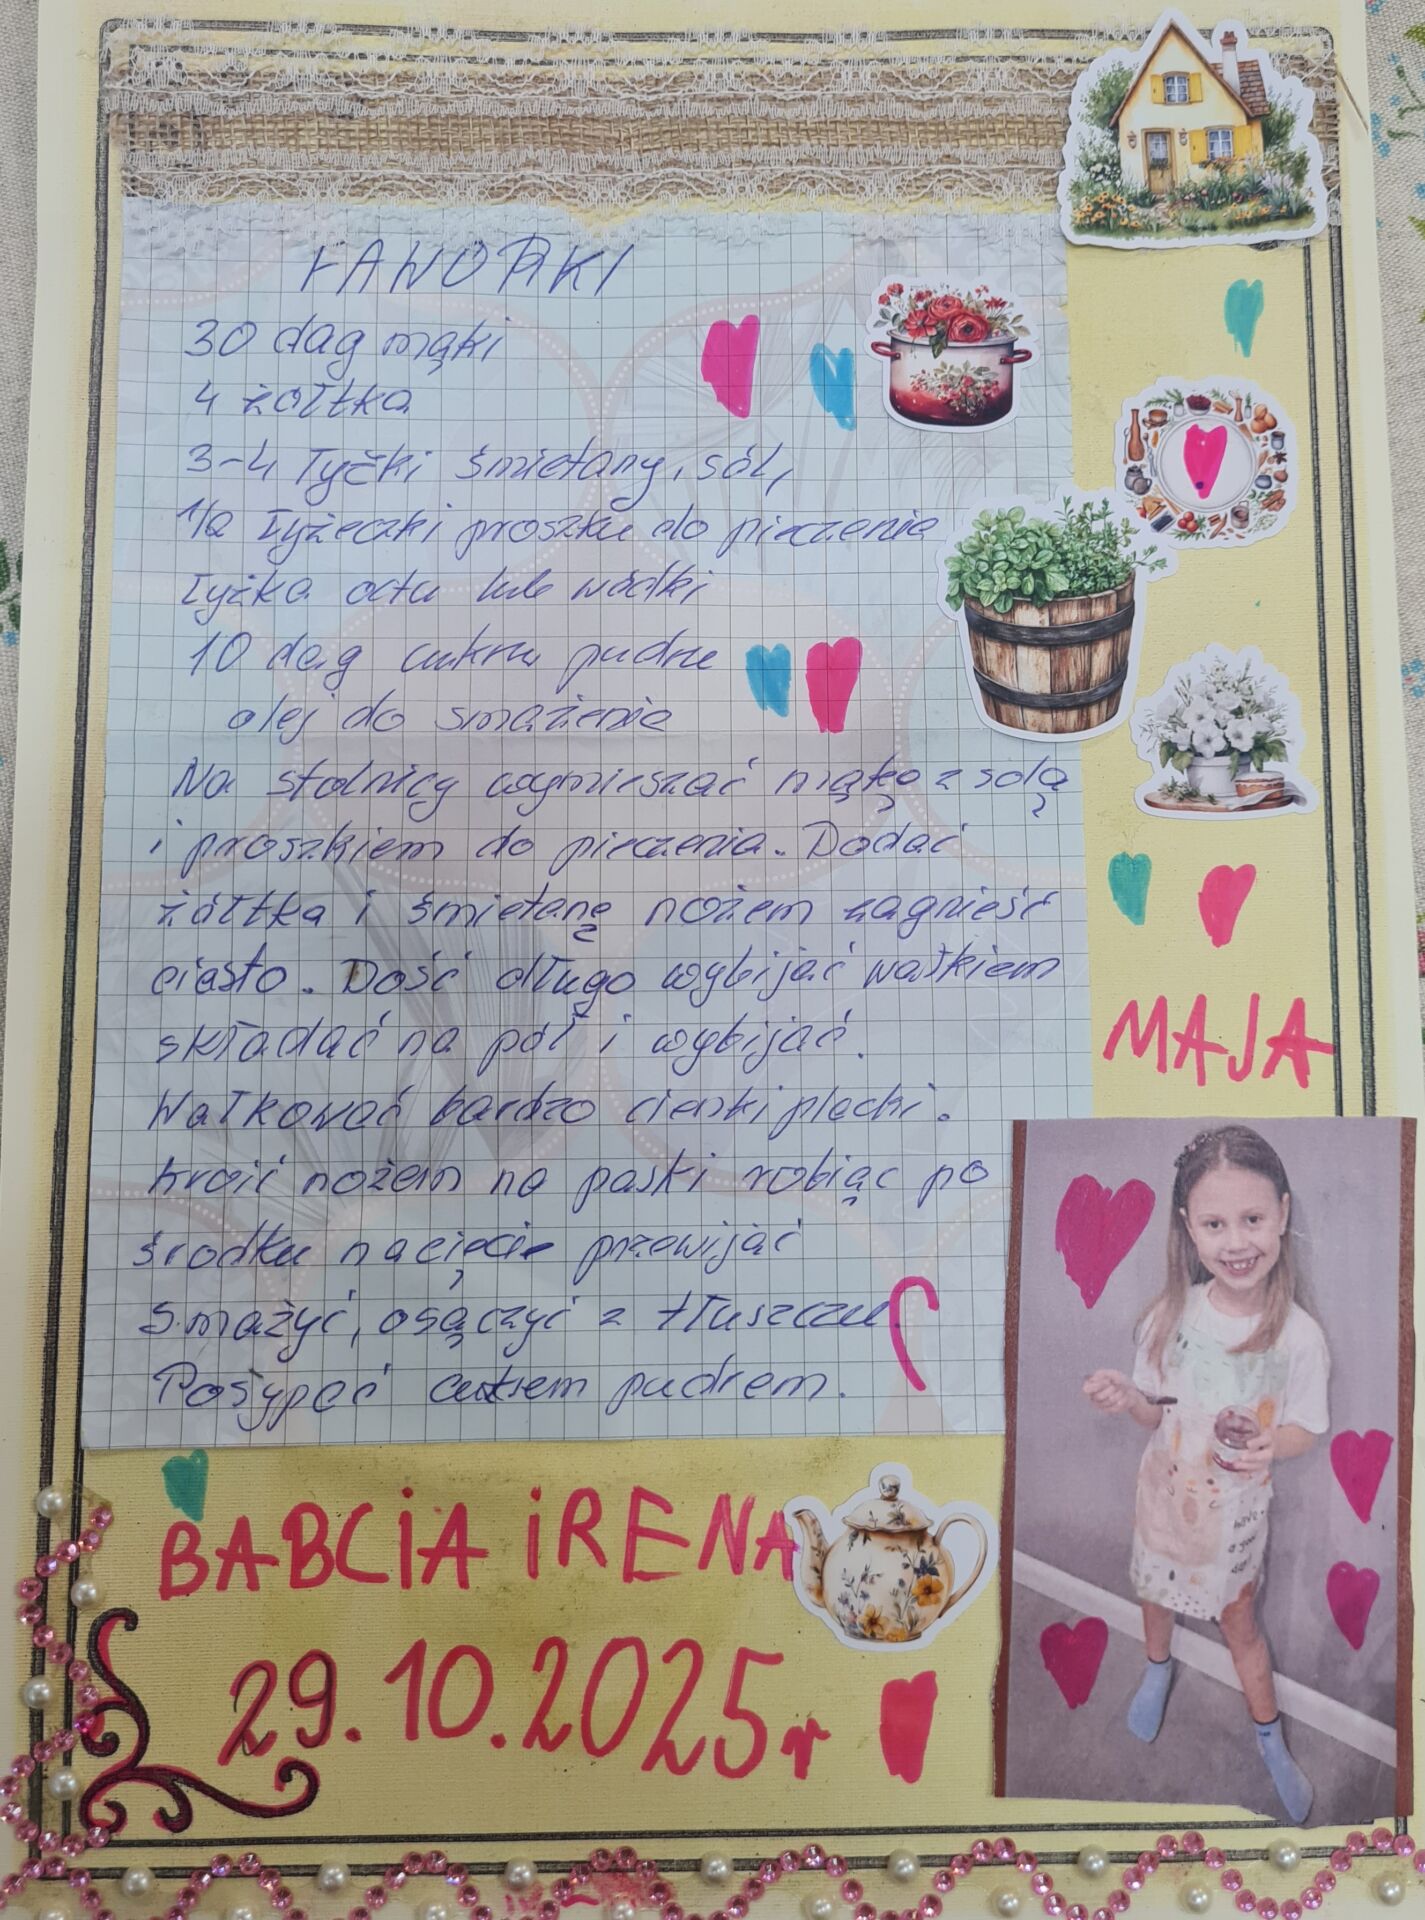 FAWORKI
30 dag mąki
4 żółtka
3-4 łyżki śmietany, sól,
1/2 łyżeczki proszku do pieczenia
łyżka octu lub wódki
10 dag cukru pudru
olej do smażenia
Na stolnicy wymieszać mąkę z solą
i proszkiem do pieczenia. Dodać
żółtka i śmietanę nożem zagnieść
ciasto. Dość długo wybijać wałkiem
składać na pół i wybijać.
Wałkować bardzo cienki placki.
kroić nożem na paski robiąc po
środku nacięcie przewijać
Smażyć, osączyć z tłuszczu.
Posypać cukrem pudrem.
MAJA
have
a good
day!
BABCIA IRENA
29.10.2025r